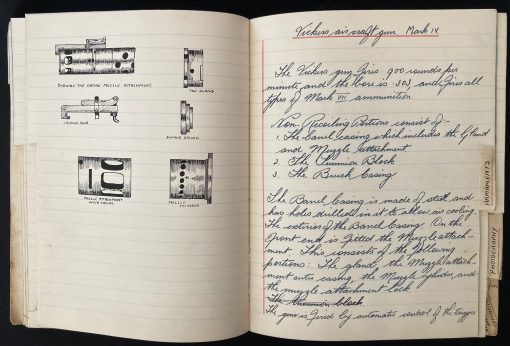 SHOWING THE ENTIRE MUZZLE ATTACHMENT
THE GLAND
LOCKING
MUZZLE ATTACHMENT
OUTER CASING
MUZZLE
Vickers aircraft gun Mark IV
The Vickers gun fires 900 rounds per
minute, and the bore is .303, and fires all
types of Mark VII ammunition
Non-Recoiling Portions consist of:-
1. The barrel casing which includes the Gland
and Muzzle Attachment
2. The Trunnion Block
3. The Breech Casing
The Barrel Casing is made of steel and
has holes drilled in it to allow air cooling
the exterior of the Barrel Casing. On the
front end is fitted the Muzzle attach-
ment. This consists of the following
portions: The gland, the Muzzle attach-
ment outer casing, the Muzzle cylinder, and
the muzzle attachment lock.
The Trunnion block
The gun is fired by automatic control of the trigger
ARMAMENTS
PHOTOGRAPHY